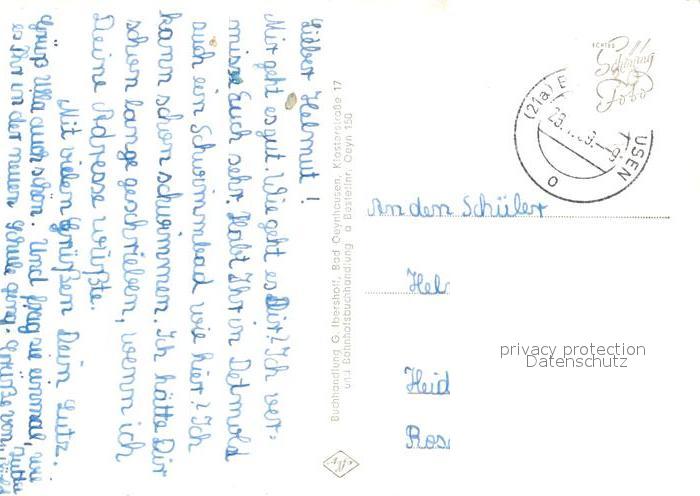 Lieber Helmut!
Mir geht es gut. Wie geht es Dir? Ich ver-
misse Euch sehr. Habt Ihr in Detmold
auch ein Schwimmbad wie hier? Ich
kann schon schwimmen. Ich hätte Dir
schon lange geschrieben, wenn ich
Deine Adresse wüßte.
Mit vielen Grüßen Dein Lutz.
Grüß Ulla auch schön. Und frag sie einmal, wie
es ihr in der neuen Schule geht. Grüße von
Buchhandlung G. Ibershoff, Bad Oeynhausen, Klosterstraße 17
und Bahnhofsbuchhandlung a Bestellnr. Oeyn 150
ECHTES
Schöning
Foto
(21a)
USEN
An den Schüler
Hel
privacy protection
Datenschutz
Heid
Ros